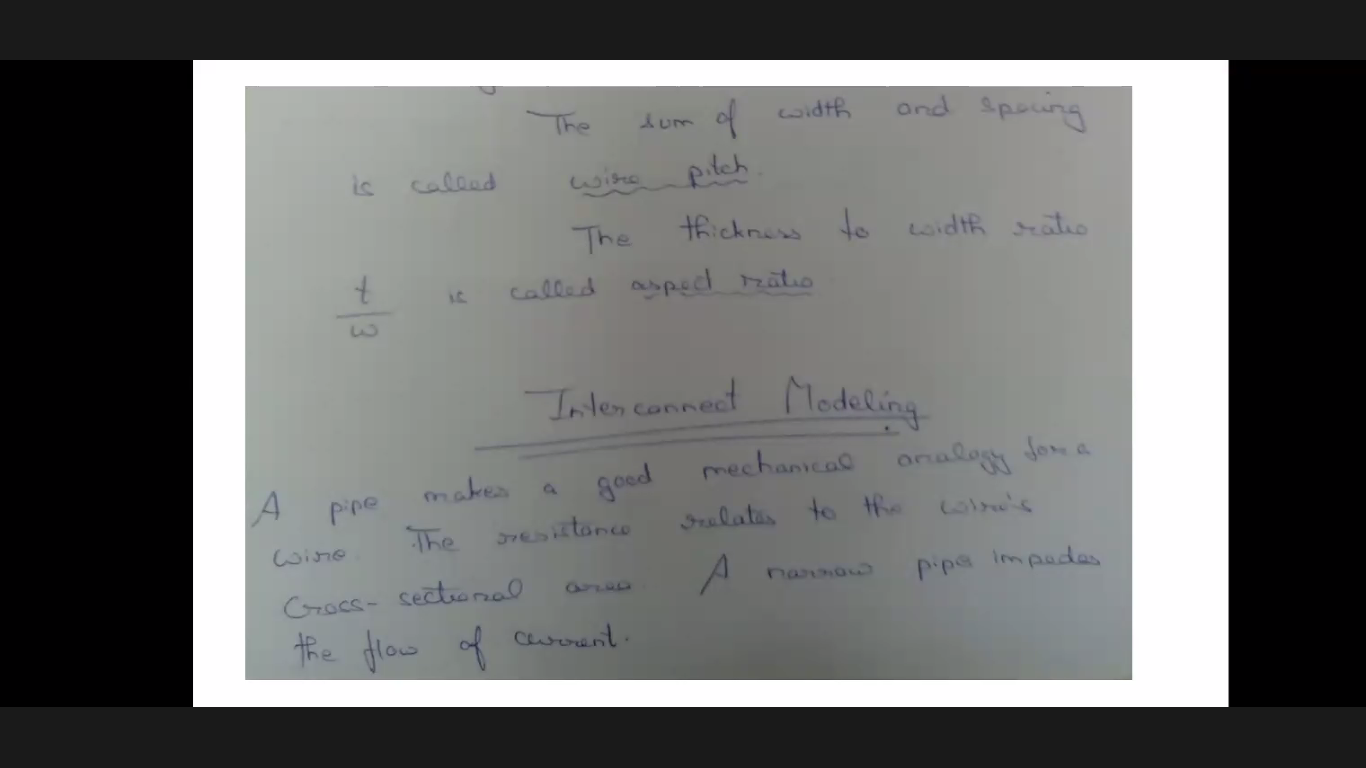 The sum of width and spacing
is called wire pitch.
The thickness to width ratio
t/w is called aspect ratio
Interconnect Modeling
A pipe makes a good mechanical analogy for a
wire. The resistance relates to the wire's
Cross-sectional area. A narrow pipe impedes
the flow of current.